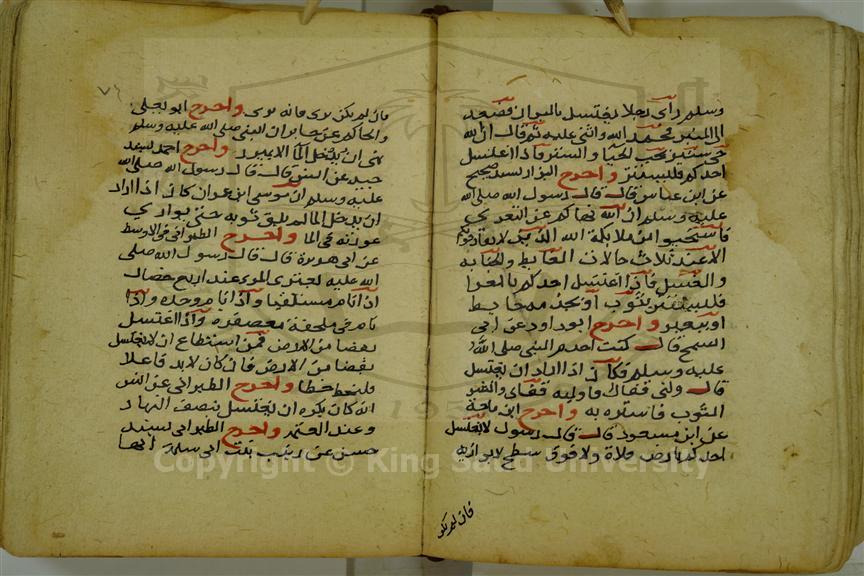 وسلم رأى رجلا يغتسل بالبراز فصعد
الى المنبر فحمد الله واثنى عليه ثم قال ان الله
حي ستير يحب الحيا والستر فاذا اغتسل
احدكم فليستتر واخرج البزار بسند صحيح
عن ابن عباس قال قال رسول الله صلى الله
عليه وسلم ان الله نهاكم عن التعري
فاستحيوا من ملائكة الله الذين لا يفارقونكم
الا عند ثلاث حالات الغايط والجنابة
والغسل فاذا اغتسل احدكم بالعرا
فليستتر بثوب او بجذمة حايط
او ببعير واخرج ابو داود عن ابي
السمح قال كنت اخدم النبي صلى الله
عليه وسلم فكان اذا اراد ان يغتسل
قال ولني قفاك فاوليه قفاي وانشر
الثوب فاستره به واخرج ابن ماجة
عن ابن مسعود قال قال رسول لا يغتسل
احدكم بارض فلاة ولا فوق سطح لا يواريه
فان لم يكن
٧٤
فان لم يكن يرى فانه يرى واخرج ابو يعلى
والحاكم عن جابر ان النبي صلى الله عليه وسلم
نهى ان يدخل الما الا بميزر واخرج احمد بسند
جيد عن انس قال قال رسول الله صلى الله
عليه وسلم ان موسى ابن عمران كان اذا اراد
ان يدخل الما لم يلق ثوبه حتى يواري
عورته في الما واخرج الطبراني في الاوسط
عن ابي هريرة قال قال رسول الله صلى
الله عليه يعترى المرء عند اربع خصال
اذا نام مستلقيا واذا نام وحده واذا
نام في ملحفة معصفرة واذا اغتسل
بفضا من الارض فمن استطاع ان لا يغتسل
بفضا من الارض فان كان لابد فاعلا
فليخط خطا واخرج الطبراني عن انس
انه كان يكره ان يغتسل بنصف النهار
وعند العتمة واخرج الطبراني بسند
حسن عن زينب بنت ابي سلمة انها
Copyright © King Saud University
1957